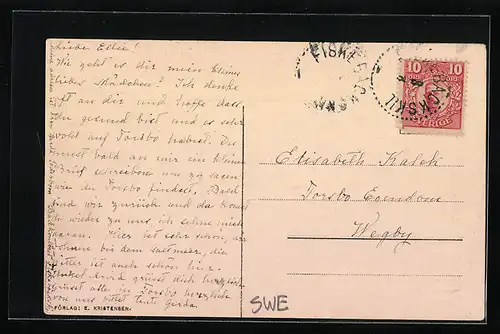 Liebe Ellie!
Wie geht es dir mein kleines
liebes Mädchen? Ich denke
oft an dir und hoffe dass
du gesund bist und es sehr
wohl auf Torsbo habest. Du
musst bald an mir ein kleinen
Brief schreiben um zu sagen
wie du Torsbo findest. Bald
sind wir zurück und da kommst
du wieder zu uns, ich sehne mich
daran. Hier ist sehr schön, wir
wohnen bis dem salzmeer, die
ist auch schön hier.
Onkel Arvid grüsst dich herzlich
grüsst alle in Torsbo herzlich
von uns bittet tante Gerda.
FÖRLAG: E. KRISTENSEN.
FISKEBÄCKSKIL
FISKEBÄCKSKIL
10 10
SVERIGE
Elisabeth Kalek
Torsbo Egendom
Wegby
SWE